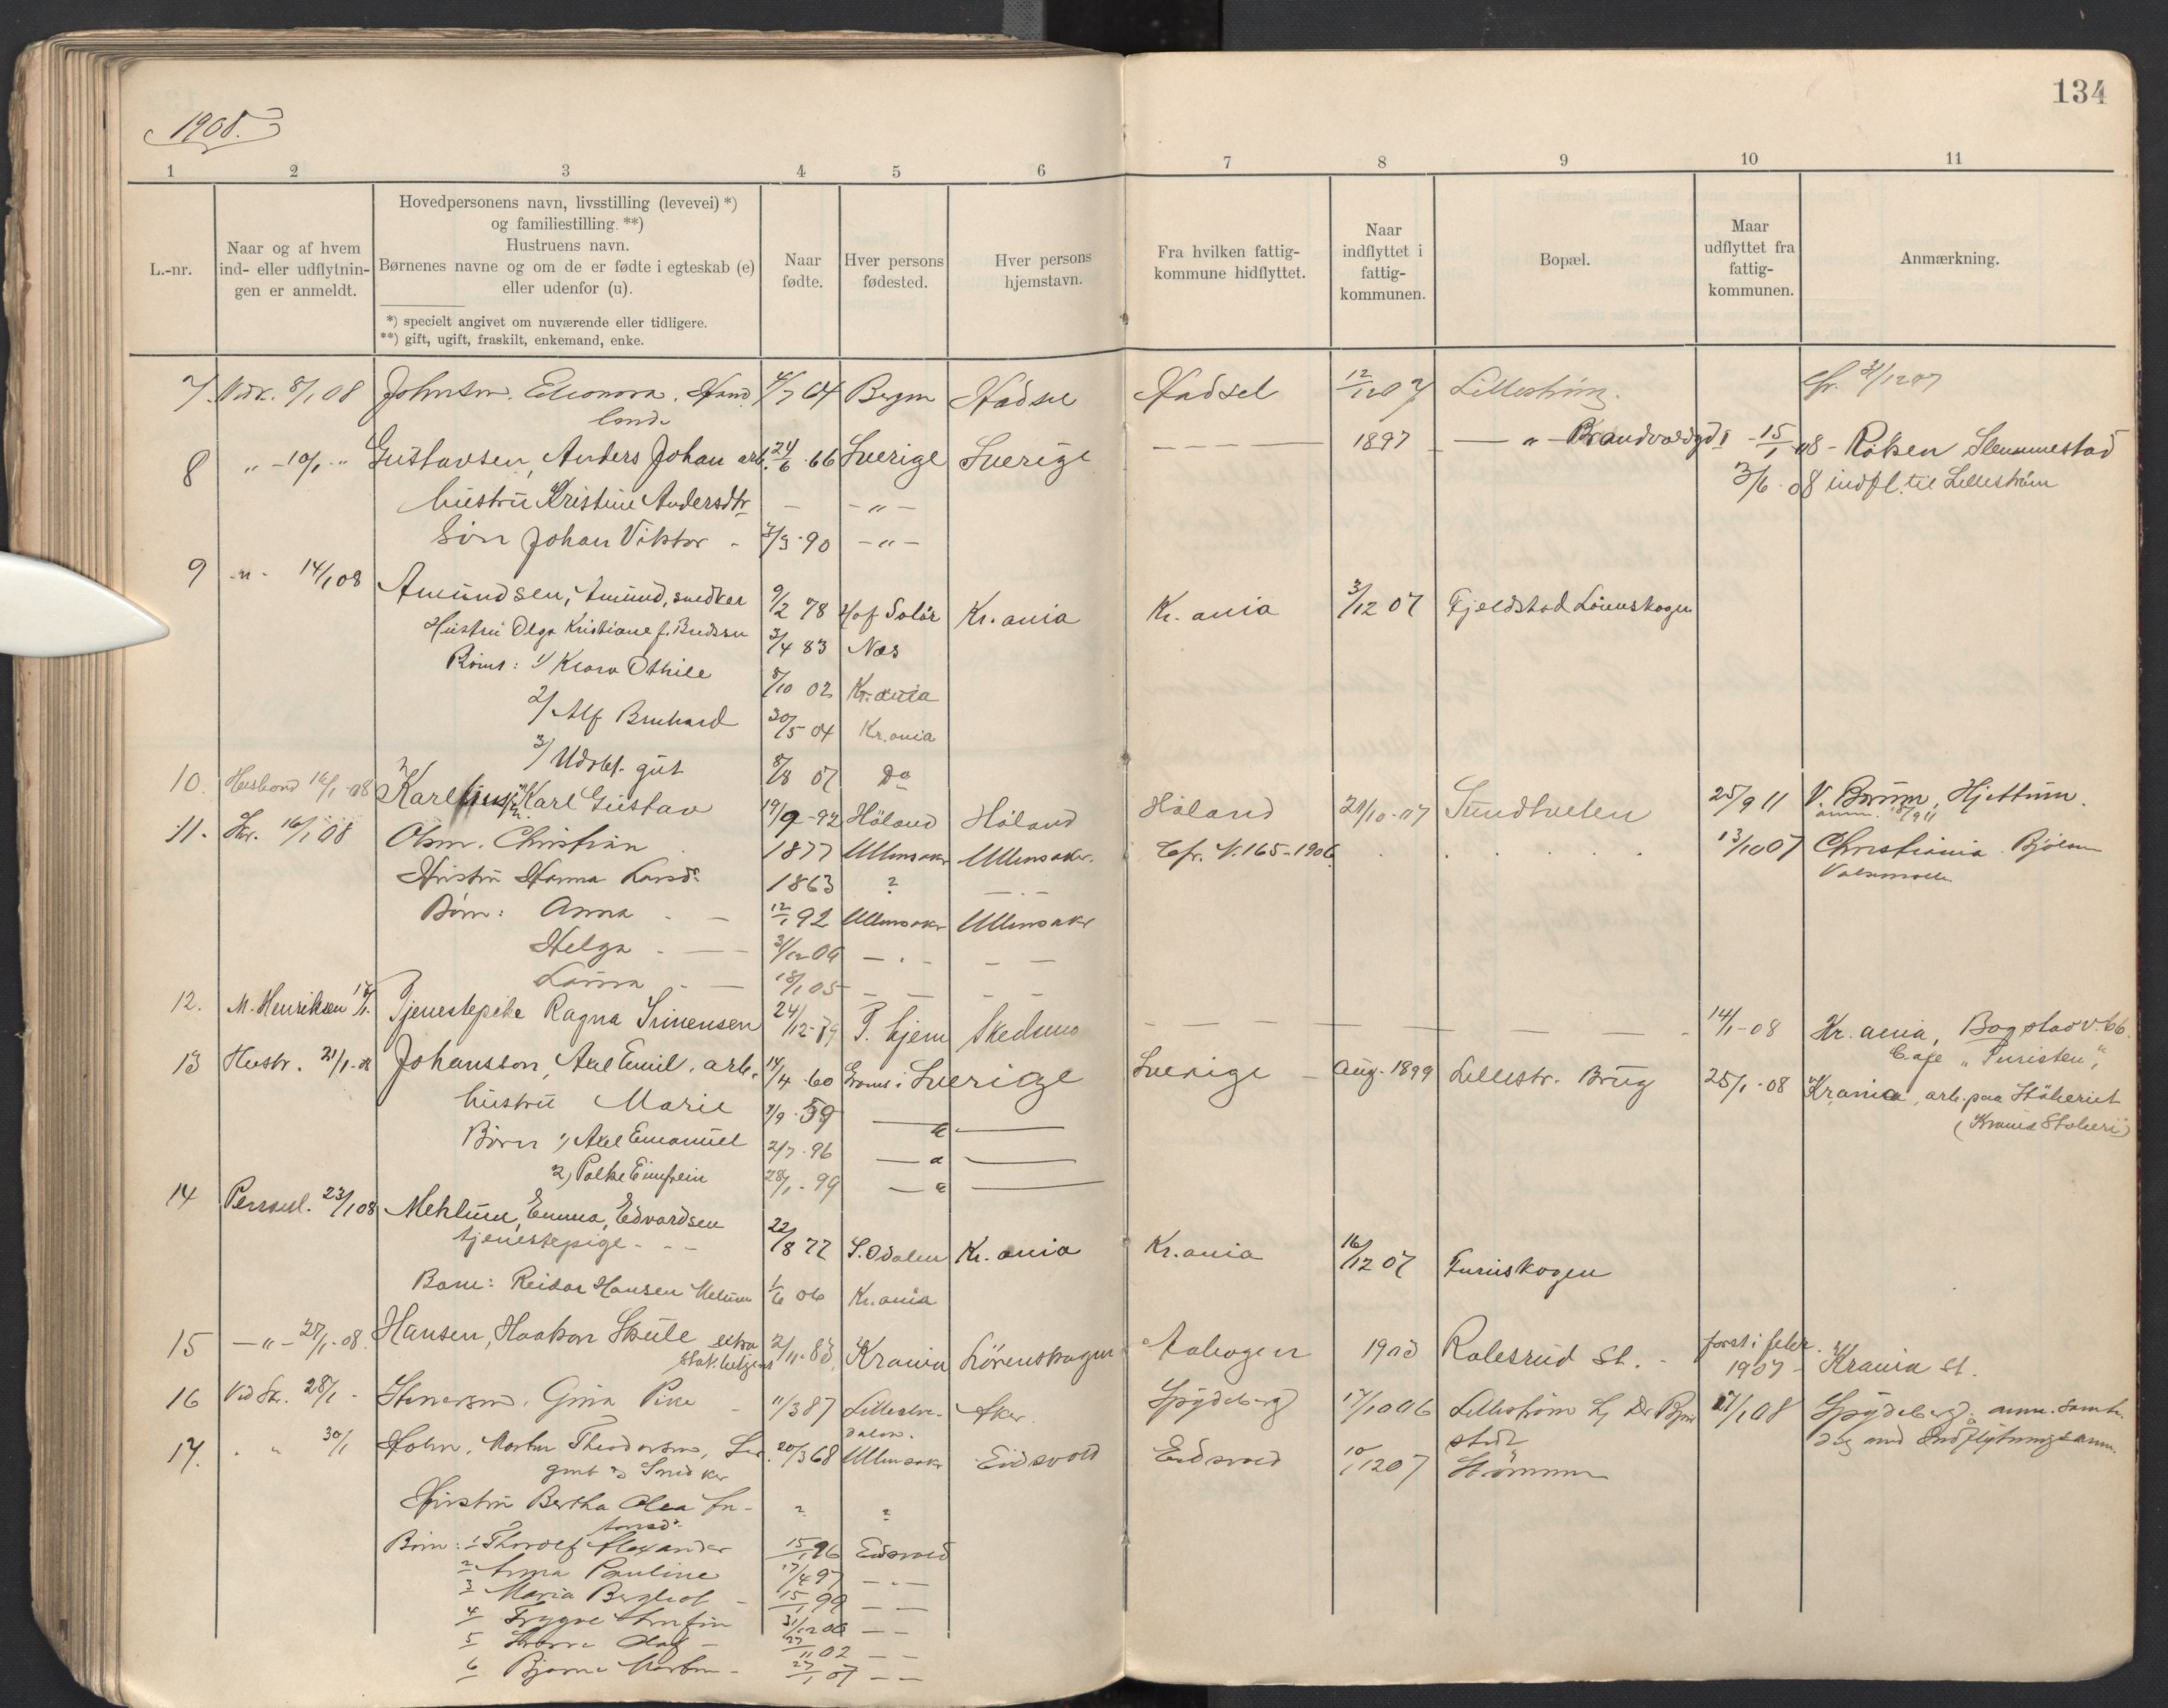 134
1908.
1 2 3 4 5 6 7 8 9 10 11
L.-nr.
Naar og af hvem
ind- eller udflytnin-
gen er anmeldt.
Hovedpersonens navn, livsstilling (levevei) *)
og familiestilling. **)
Hustruens navn.
Børnenes navne og om de er fødte i egteskab (e)
eller udenfor (u).
*) specielt angivet om nuværende eller tidligere.
**) gift, ugift, fraskilt, enkemand, enke.
Naar
fødte.
Hver persons
fødested.
Hver persons
hjemstavn.
Fra hvilken fattig-
kommune hidflyttet.
Naar
indflyttet i
fattig-
kommunen.
Bopæl.
Maar
udflyttet fra
fattig-
kommunen.
Anmærkning.
7. 8/1 08 Johnsen, Eleonora, 4/7 64 Hadsel Hadsel 12/12 07 Lillestrøm. Cfr. 31/12 07
8 „ - 10/1 „ Gustavsen, Anders Johan arb. 24/6 66 Sverige Sverige — — — — 1897 — „ — 15/1 08 - Røken Slemmestad
hustru Kristine Andersdtr - - „ - 3/6 08 indfl. til Lillestrøm
Søn Johan Viktor - 7/3 90 - „ -
9 - „ - 14/1 08 Amundsen, Amund, snedker 9/2 78 Hof Solør Kr.ania Kr.ania 3/12 07 Fjeldstad Lørenskogen
Hustru Olga Kristiane f. 3/4 83 Næs
Børn: 1/ Klara Othile 8/10 02 Kr.ania
2/ Alf Bernhard 30/5 04 Kr.ania
3/ Udøbt gut 8/8 07 Do
10. 08 Karl Gustav 19/9 - 92 Høland Høland Høland 21/10 - 07 25/9 11 V. Bærum, Hjettum.
11. 16/1 08 Olsen, Christian 1877 Ullensaker Ullensaker. Cfr. N. 165 - 1906 13/10 07 Christiania Bjølsen
Valsemølle
Hustru Hanna Larsdr 1863 ? - . -
Børn: Anna - - 12/1 92 Ullensaker Ullensaker
Helga - — - . - — —
Laura - — 18/1 05 — — — —
12. M. Henriksen Tjenestepike Ragna Simensen 24/12 - 79 T. hjem Skedsmo — — — — — — 14/1 - 08 Kr.ania, Bogstadv. 66.
Cafe „Turisten“,
13 Hustr. 21/1 - 08 Johansson, Axel Emil, arb. 14/4 60 i Sverige Sverige — Aug. 1899 Lillestr. Brug 25/1 - 08 Krania, arb. paa
hustru Marie 7/9 59 — „ —
Børn 1) Axel Emanuel 2/7 96 — „ —
2) 28/1 - 99 — „ —
14 Personl. 23/1 08 Mehlum, Emma, Edvardsen
tjenestepige - - - 22/8 77 S. Odalen Kr.ania Kr.ania 16/12 07 Furuskogen
Barn: Reidar Hansen Melum 1/6 06 Kr.ania
15 — „ - 27/1 - 08. Hansen, Haakon Skule extra 2/11 - 83 Krania Lørenskogen Aabogen 1903 Robsrud St. - først i febr.
1907 - Krania st.
16 28/1 - Stenersen, Gina Pike - 11/3 87 Aker. Spydeberg 17/10 06 Lillestrøm 08 Spydeberg. anm. samti-
dig med Indflytningsanm.
17. . „ 30/1 Holm, Morten Theodorsen, 20/3 68 Ullensaker Eidsvold Eidsvold 10/12 07 Strømmen
gmt og Snedker
Hustru Bertha Olea - ? ?
Børn: 1 Thorolf Alexander 15/1 96 Eidsvold
2 Anna Pauline 17/4 97 — . —
3 Maria Bergliot - 15/1 99 — —
4 Trygve — —
5 Olaf - 27/11 02 — —
6 Bjarne Morten - 27/1 07 — —